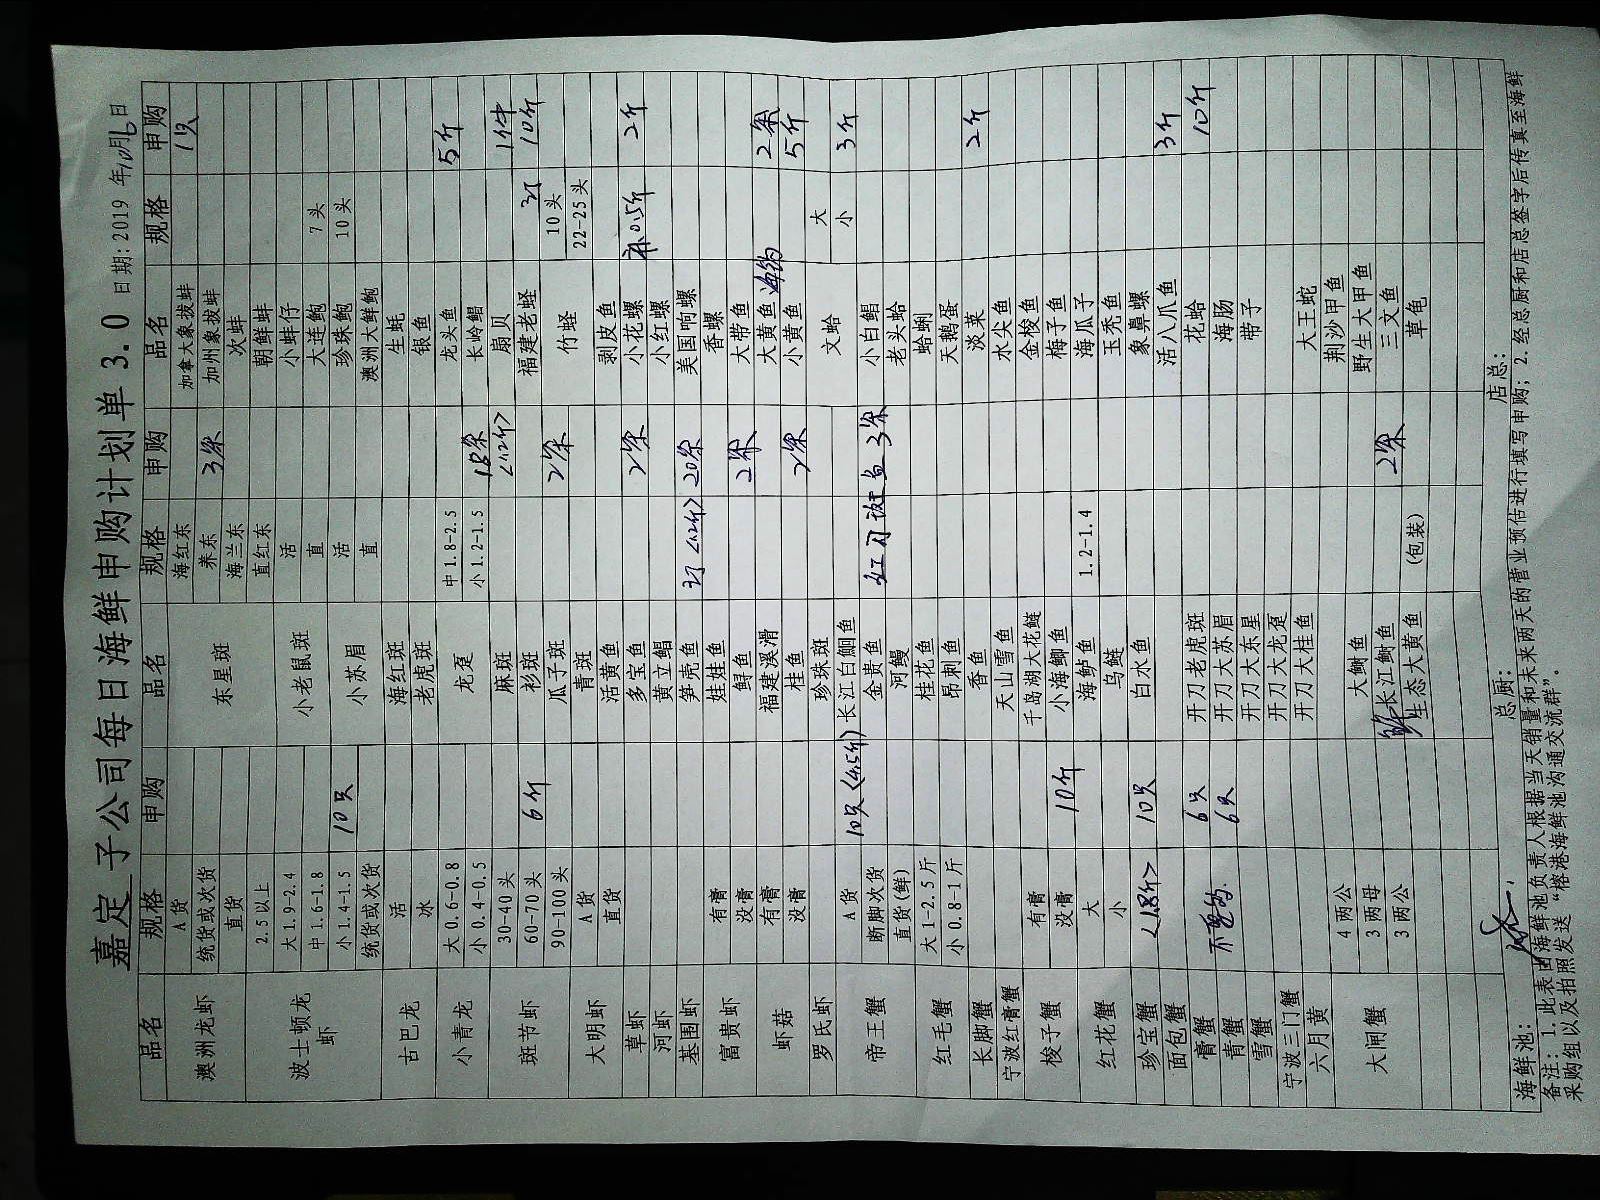 嘉定子公司每日海鲜申购计划单 3.0 日期:2019 年10月6日
品名 规格 申购 品名 规格 申购 品名 规格 申购
澳洲龙虾 A货 东星斑 海红东 加拿大象拔蚌 1只
统货或次货 养东 3条 加州象拔蚌
直货 海兰东 次蚌
波士顿龙虾 2.5以上 直红东 朝鲜蚌
大1.9-2.4 小老鼠斑 活 小蚌仔
中1.6-1.8 直 大连鲍 7头
小1.4-1.5 10只 小苏眉 活 珍珠鲍 10头
统货或次货 直 澳洲大鲜鲍
古巴龙 活 海红斑 生蚝
冰 老虎斑 银鱼
小青龙 大0.6-0.8 龙趸 中1.8-2.5 龙头鱼 5斤
小0.4-0.5 小1.2-1.5 长岭鲳
斑节虾 30-40头 麻斑 <1.2斤> 扇贝 1件
60-70头 6斤 衫斑 福建老蛏 10斤
90-100头 瓜子斑 2条 竹蛏 10头
大明虾 A货 青斑 22-25头
直货 活黄鱼 剥皮鱼
草虾 多宝鱼 2条 小花螺 2斤
河虾 黄立鲳 小红螺
基围虾 笋壳鱼 <1.2斤> 20条 美国响螺
富贵虾 有膏 娃娃鱼 香螺
没膏 鲟鱼 2条 大带鱼
虾菇 有膏 福建溪滑 大黄鱼 2条
没膏 桂鱼 2条 小黄鱼 5斤
罗氏虾 珍珠斑 文蛤 大
帝王蟹 A货 10只<4.5斤> 长江白鮰鱼 小 3斤
断脚次货 金贵鱼 3条 小白鲳
直货(鲜) 河鳗 老头蛤
红毛蟹 大1-2.5斤 桂花鱼 蛤蜊
小0.8-1斤 昂刺鱼 天鹅蛋
长脚蟹 香鱼 淡菜 2斤
宁波红膏蟹 天山雪鱼 水尖鱼
梭子蟹 有膏 千岛湖大花鲢 金梭鱼
没膏 10斤 小海鲫鱼 梅子鱼
红花蟹 大 海鲈鱼 1.2-1.4 海瓜子
小 乌鲢 玉秃鱼
珍宝蟹 <1.8斤> 10只 白水鱼 象鼻螺
面包蟹 活八爪鱼 3斤
膏蟹 6只 开刀老虎斑 花蛤 10斤
青蟹 6只 开刀大苏眉 海肠
雪蟹 开刀大东星 带子
宁波三门蟹 开刀大龙趸
六月黄 开刀大桂鱼 大王蛇
大闸蟹 4两公 荆沙甲鱼
3两母 大鲥鱼 野生大甲鱼
3两公 长江鲥鱼 2条 三文鱼
生态大黄鱼 (包装) 草龟
海鲜池: 总厨: 店总:
备注: 1.此表由海鲜池负责人根据当天销量和未来两天的营业预估进行填写申购; 2.经总厨和店总签字后传真至海鲜
采购组以及拍照发送“榕港海鲜池沟通交流群”。